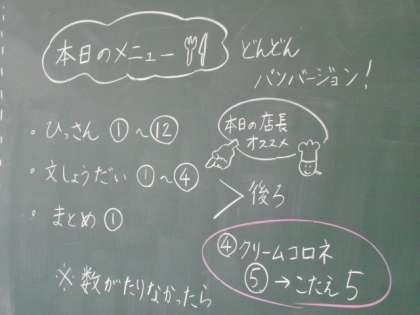 本日のメニュー
どんどん
パンバージョン!
・ひっさん ①～⑫
本日の店長
オススメ
・文しょうだい ①～④
・まとめ ①
> 後ろ
④クリームコロネ
⑤→こたえ5
※数がたりなかったら